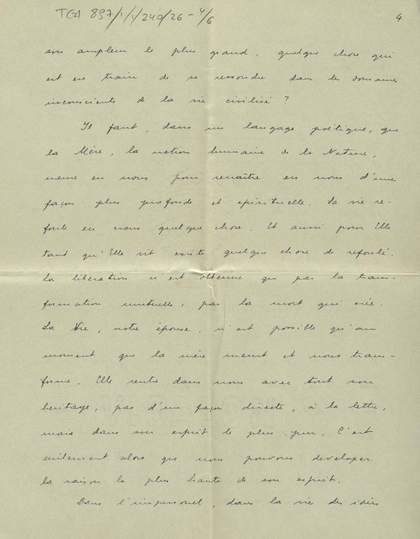 TGA 897/1/1/240/26 - 4/6
4
son ampleur le plus grand, quelque chose qui
est en train de se ressoudre dans le domaine
inconscients de la vie civilisé ?
Il faut, dans un langage poétique, que
la Mère, la notion humaine de la Nature,
meure en nous pour renaître en nous d'une
façon plus profonde et spirituelle. La vie re-
foule en nous quelque chose. Et aussi pour Elle
tant qu'Elle vit existe quelque chose de refoulé.
La libération n'est obtenue que par la trans-
formation mutuelle, par la mort qui crée.
La Vie, notre épouse, n'est possible qu'au
moment que la mère meurt et nous trans-
forme. Elle rentre dans nous avec tout son
héritage, pas d'un façon directe, à la lettre,
mais dans son esprit le plus pur. C'est
seulement alors que nous pouvons developer
la raison la plus haute de son esprit.
Dans l'impersonel, dans la vie des idées